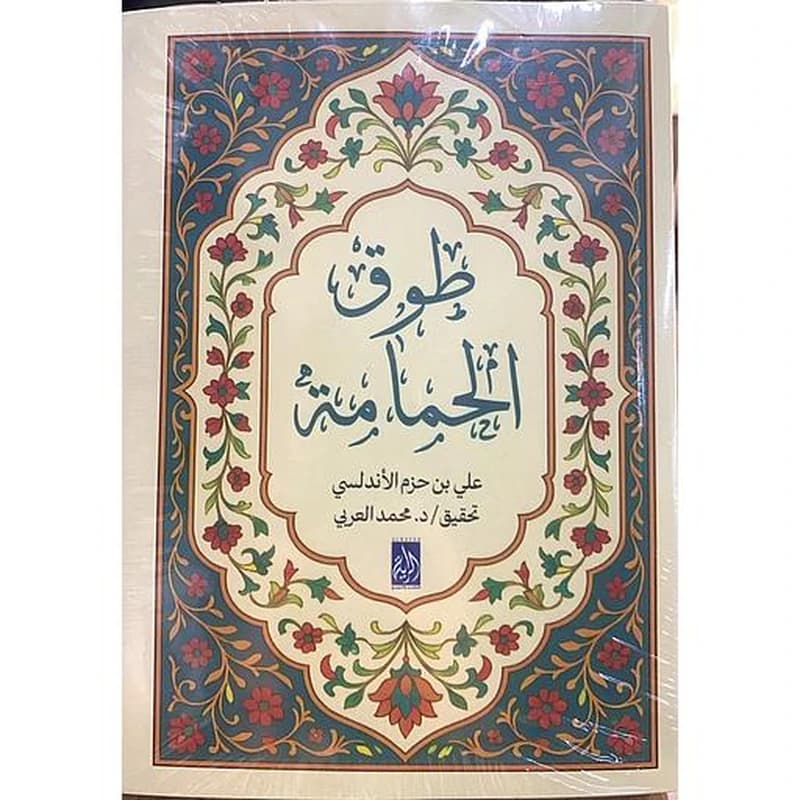 طوق
الحمامة
علي بن حزم الأندلسي
تحقيق/ د. محمد العربي
الراية